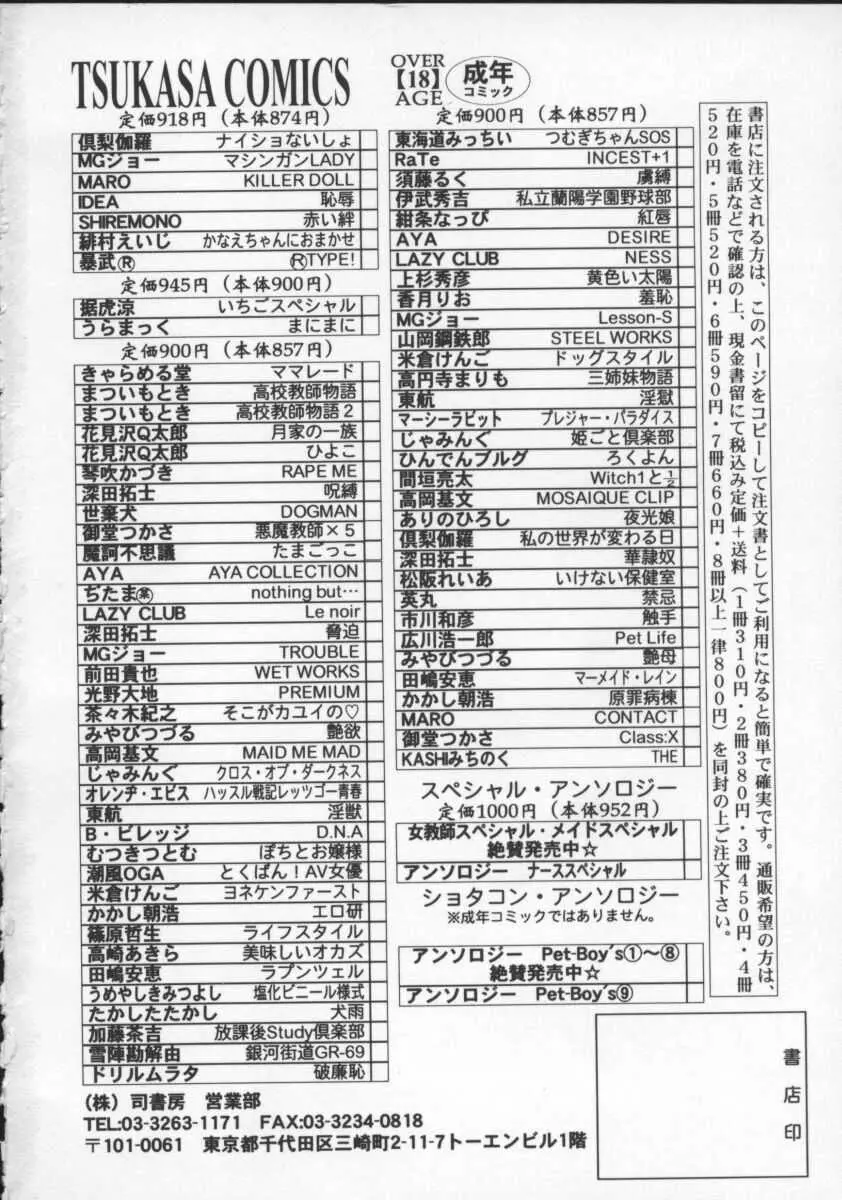 TSUKASA COMICS
OVER
【18】
AGE
成年
コミック
定価918円（本体874円）
倶梨伽羅 ナイショないしょ
MGジョー マシンガンLADY
MARO KILLER DOLL
IDEA 恥辱
SHIREMONO 赤い絆
緋村えいじ かなえちゃんにおまかせ
暴武Ⓡ ⓇTYPE!
定価945円（本体900円）
据虎涼 いちごスペシャル
うらまっく まにまに
定価900円（本体857円）
きゃらめる堂 ママレード
まついもとき 高校教師物語
まついもとき 高校教師物語2
花見沢Q太郎 月家の一族
花見沢Q太郎 ひよこ
琴吹かづき RAPE ME
深田拓士 呪縛
世棄犬 DOGMAN
御堂つかさ 悪魔教師×5
魔訶不思議 たまごっこ
AYA AYA COLLECTION
ぢたま㊣ nothing but…
LAZY CLUB Le noir
深田拓士 脅迫
MGジョー TROUBLE
前田貴也 WET WORKS
光野大地 PREMIUM
茶々木紀之 そこがカユイの♡
みやびつづる 艶欲
高岡基文 MAID ME MAD
じゃみんぐ クロス・オブ・ダークネス
オレンヂ・エビス ハッスル戦記レッツゴー青春
東航 淫獣
B・ビレッジ D.N.A
むつきつとむ ぽちとお嬢様
潮風OGA とくばん！AV女優
米倉けんご ヨネケンファースト
かかし朝浩 エロ研
篠原哲生 ライフスタイル
高崎あきら 美味しいオカズ
田嶋安恵 ラプンツェル
うめやしきみつよし 塩化ビニール様式
たかしたたかし 犬雨
加藤茶吉 放課後Study倶楽部
雪陣勘解由 銀河街道GR-69
ドリルムラタ 破廉恥
定価900円（本体857円）
東海道みっちい つむぎちゃんSOS
RaTe INCEST+1
須藤るく 虜縛
伊武秀吉 私立蘭陽学園野球部
紺条なっぴ 紅唇
AYA DESIRE
LAZY CLUB NESS
上杉秀彦 黄色い太陽
香月りお 羞恥
MGジョー Lesson-S
山岡鋼鉄郎 STEEL WORKS
米倉けんご ドッグスタイル
高円寺まりも 三姉妹物語
東航 淫獄
マーシーラビット プレジャー・パラダイス
じゃみんぐ 姫ごと倶楽部
ひんでんブルグ ろくよん
間垣亮太 Witch1と½
高岡基文 MOSAIQUE CLIP
ありのひろし 夜光娘
倶梨伽羅 私の世界が変わる日
深田拓士 華隷奴
松阪れいあ いけない保健室
英丸 禁忌
市川和彦 触手
広川浩一郎 Pet Life
みやびつづる 艶母
田嶋安恵 マーメイド・レイン
かかし朝浩 原罪病棟
MARO CONTACT
御堂つかさ Class:X
KASHIみちのく THE
スペシャル・アンソロジー
定価1000円（本体952円）
女教師スペシャル・メイドスペシャル
絶賛発売中☆
アンソロジー ナーススペシャル
ショタコン・アンソロジー
※成年コミックではありません。
アンソロジー Pet-Boy's①〜⑧
絶賛発売中☆
アンソロジー Pet-Boy's⑨
書店に注文される方は、このページをコピーして注文書としてご利用になると簡単で確実です。通販希望の方は、
在庫を電話などで確認の上、現金書留にて税込み定価＋送料（1冊310円・2冊380円・3冊450円・4冊
520円・5冊520円・6冊590円・7冊660円・8冊以上一律800円）を同封の上ご注文下さい。
書店印
（株）司書房 営業部
TEL:03-3263-1171 FAX:03-3234-0818
〒101-0061 東京都千代田区三崎町2-11-7トーエンビル1階